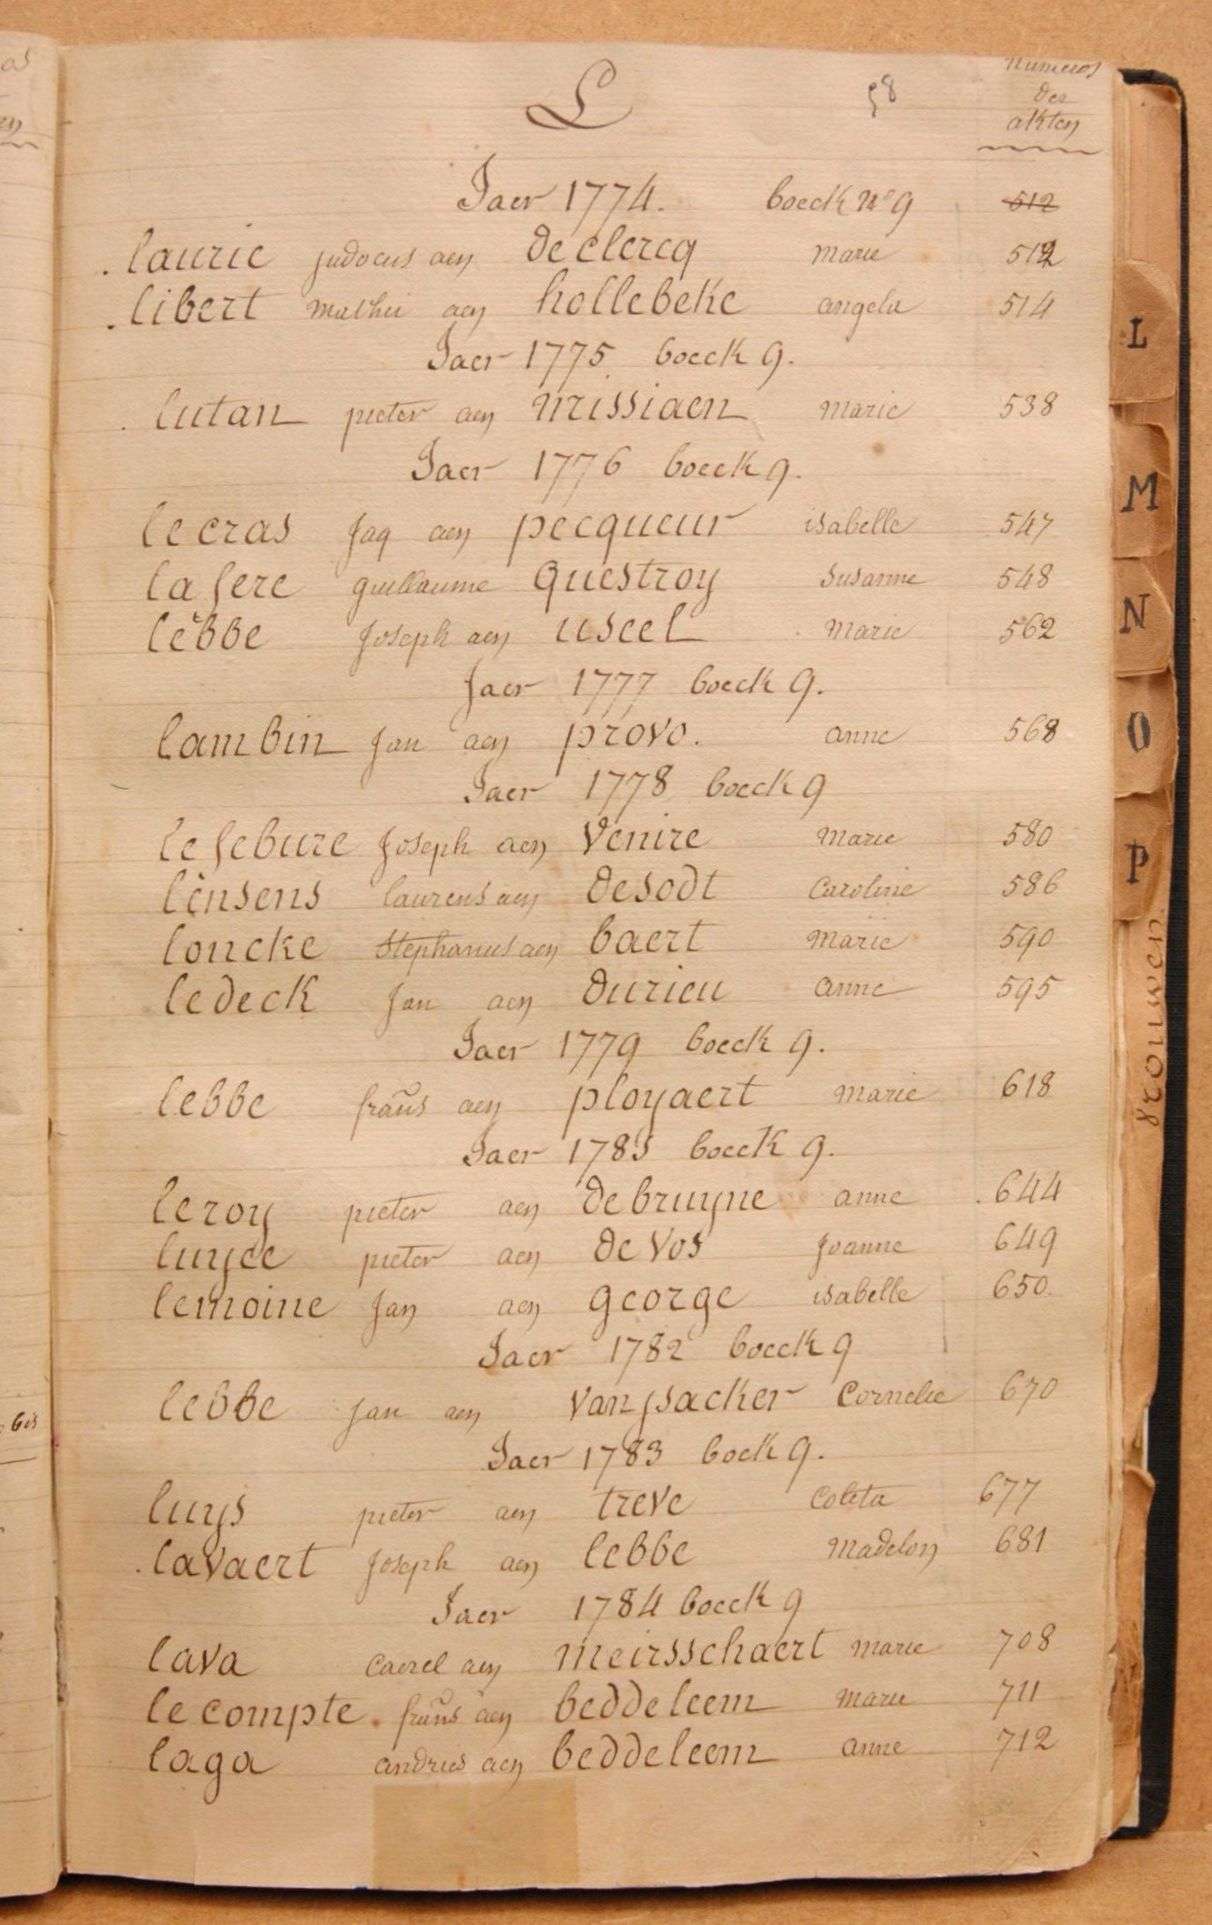 L 58 numeros
der
akten
Jaer 1774. boeck No 9 512
lauric judocus aen declercq marie 512
libert mathii aen hollebeke angela 514
Jaer 1775 boeck 9.
lutan pieter aen missiaen marie 538
Jaer 1776 boeck 9.
lecras jaq aen pecqueur isabelle 547
lafere guillaume questroy susanne 548
lebbe joseph aen useel marie 562
Jaer 1777 boeck 9.
lambin Jan aen provo. anne 568
Jaer 1778 boeck 9
lefebure joseph aen venire marie 580
lensens laurens aen desodt caroline 586
loncke stephanus aen baert marie 590
ledeck Jan aen durieu anne 595
Jaer 1779 boeck 9.
lebbe frans aen ployaert marie 618
Jaer 1785 boeck 9.
leroy pieter aen debruyne anne 644
luyce pieter aen de vos joanne 649
lemoine Jan aen george isabelle 650
Jaer 1782 boeck 9
lebbe jan aen vanysacker cornelie 670
Jaer 1783 boek 9.
luys pieter aen treve coleta 677
lavaert joseph aen lebbe madelon 681
Jaer 1784 boeck 9
lava caerel aen meirsschaert marie 708
lecompte frans aen beddeleem marie 711
laga andries aen beddeleem anne 712
L
M
N
O
P
vrouwen
bis